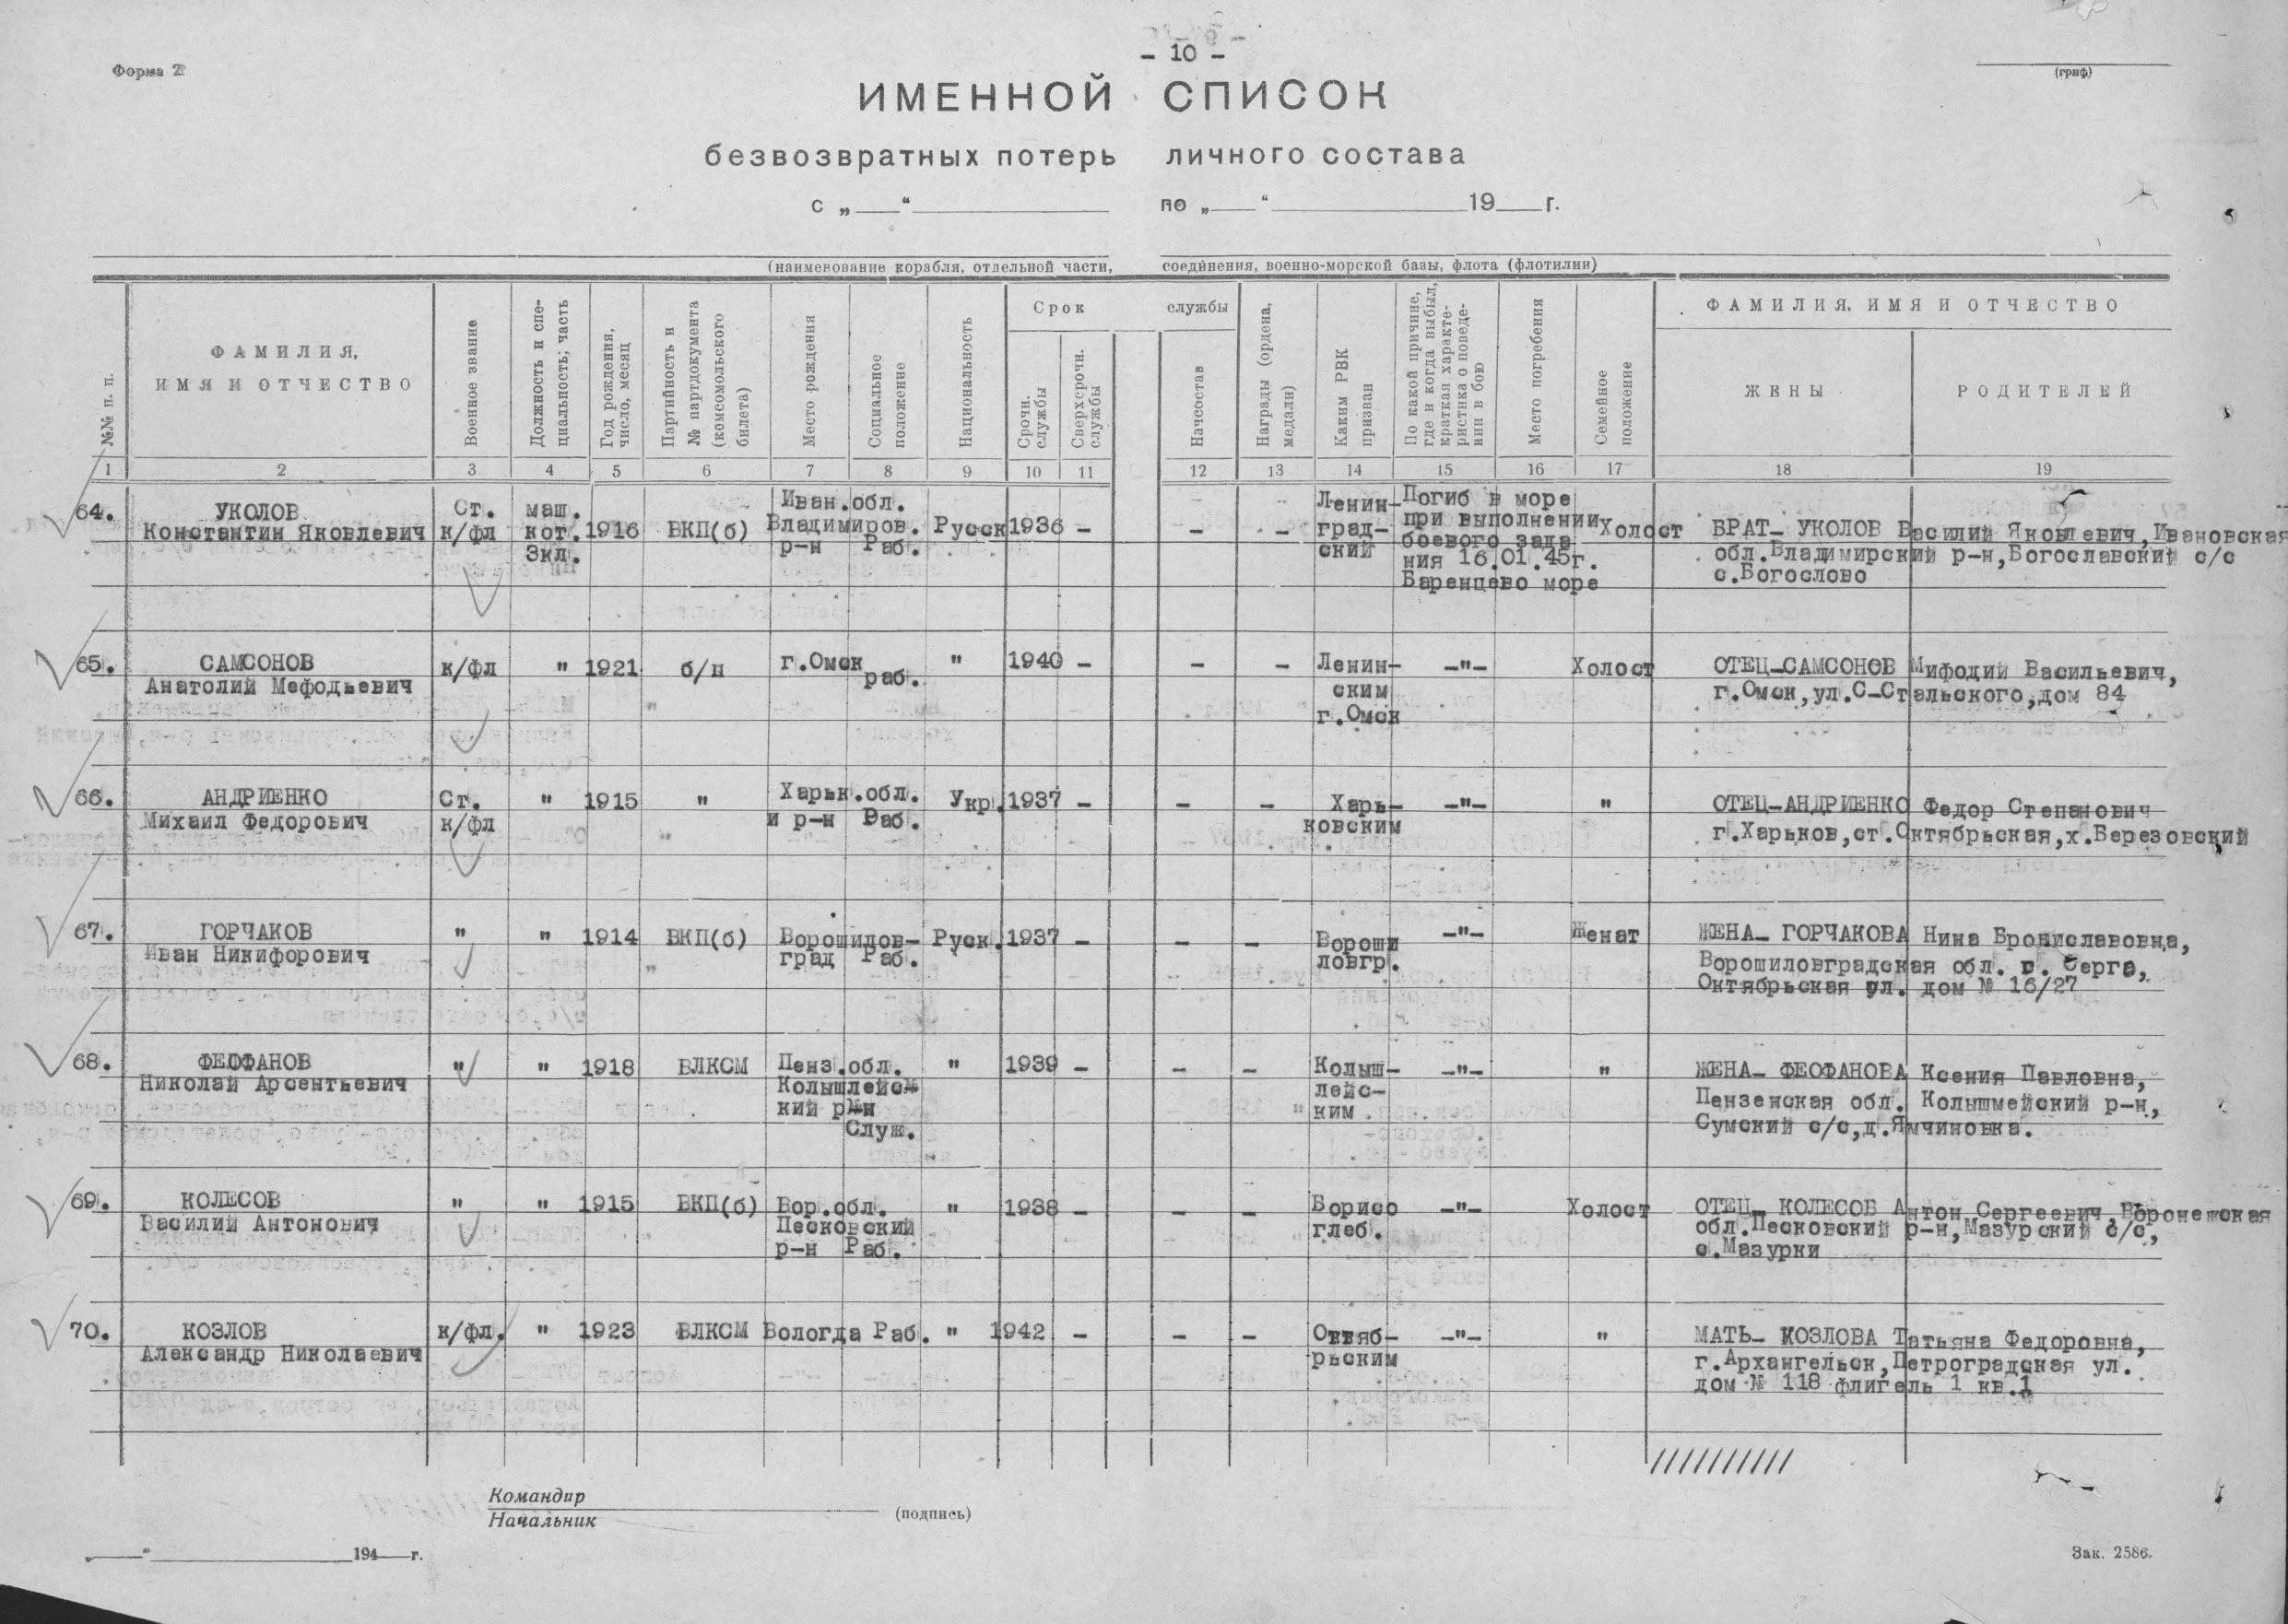 - 10 -
Форма 2
(гриф)
ИМЕННОЙ СПИСОК
безвозвратных потерь личного состава
с „ “ по „ “ 19 г.
(наименование корабля, отдельной части, соединения, военно-морской базы, флота (флотилии)
№№ п. п.
ФАМИЛИЯ,
ИМЯ И ОТЧЕСТВО
Военное звание
Должность и спе-
циальность; часть
Год рождения,
число, месяц
Партийность и
№ партдокумента
(комсомольского
билета)
Место рождения
Социальное
положение
Национальность
Срок службы
Срочн.
службы
Сверхсрочн.
службы
Начсостав
Награды (ордена,
медали)
Каким РВК
призван
По какой причине,
где и когда выбыл,
краткая характе-
ристика о поведе-
нии в бою
Место погребения
Семейное
положение
ФАМИЛИЯ, ИМЯ И ОТЧЕСТВО
ЖЕНЫ
РОДИТЕЛЕЙ
1 2 3 4 5 6 7 8 9 10 11 12 13 14 15 16 17 18 19
64.
УКОЛОВ
Константин Яковлевич
Ст.
к/фл
маш.
кот.
Зкл.
1916
ВКП(б)
Иван.обл.
Владимиров.
р-н Раб.
Русск
1936 - - -
Ленин-
град-
ский
Погиб в море
при выполнении
боевого зада
ния 16.01.45г.
Баренцево море
Холост
БРАТ- УКОЛОВ Василий Яковлевич, Ивановская
обл.Владимирский р-н,Богославский с/с
с.Богослово
65.
САМСОНОВ
Анатолий Мефодьевич
к/фл
"
1921
б/п
г.Омск
раб.
"
1940 - - -
Ленин-
ским
г.Омск
-"-
Холост
ОТЕЦ-САМСОНОВ Мифодий Васильевич,
г.Омск,ул.С-Стальского,дом 84
66.
АНДРИЕНКО
Михаил Федорович
Ст.
к/фл
"
1915
"
Харьк.обл.
и р-н Раб.
Укр.
1937 - - -
Харь-
ковским
-"-
"
ОТЕЦ-АНДРИЕНКО Федор Степанович
г.Харьков,ст.Октябрьская,х.Березовский
67.
ГОРЧАКОВ
Иван Никифорович
"
"
1914
ВКП(б)
Ворошилов-
град Раб.
Руск.
1937 - - -
Вороши
ловгр.
-"-
Женат
ЖЕНА- ГОРЧАКОВА Нина Брониславовна,
Ворошиловградская обл. г. Серго,
Октябрьская ул. дом № 16/27
68.
ФЕОФАНОВ
Николай Арсентьевич
"
"
1918
ВЛКСМ
Пенз.обл.
Колышлейс
кий р-н
Служ.
"
1939 - - -
Колыш-
лейс-
ким.
-"-
"
ЖЕНА- ФЕОФАНОВА Ксения Павловна,
Пензенская обл. Колышмейский р-н,
Сумский с/с,д.Ямчиновка.
69.
КОЛЕСОВ
Василий Антонович
"
"
1915
ВКП(б)
Вор.обл.
Песковский
р-н Раб.
"
1938 - - -
Борисо
глеб.
-"-
Холост
ОТЕЦ- КОЛЕСОВ Антон Сергеевич, Воронежская
обл.Песковский р-н,Мазурский с/с,
с.Мазурки
70.
КОЗЛОВ
Александр Николаевич
к/фл.
"
1923
ВЛКСМ
Вологда Раб.
"
1942 - - -
Октяб-
рьским
-"-
"
МАТЬ- КОЗЛОВА Татьяна Федоровна,
г.Архангельск,Петроградская ул.
дом № 118 флигель 1 кв.1
///////////
Командир
Начальник
(подпись)
„ “ 194 г.
Зак. 2586.